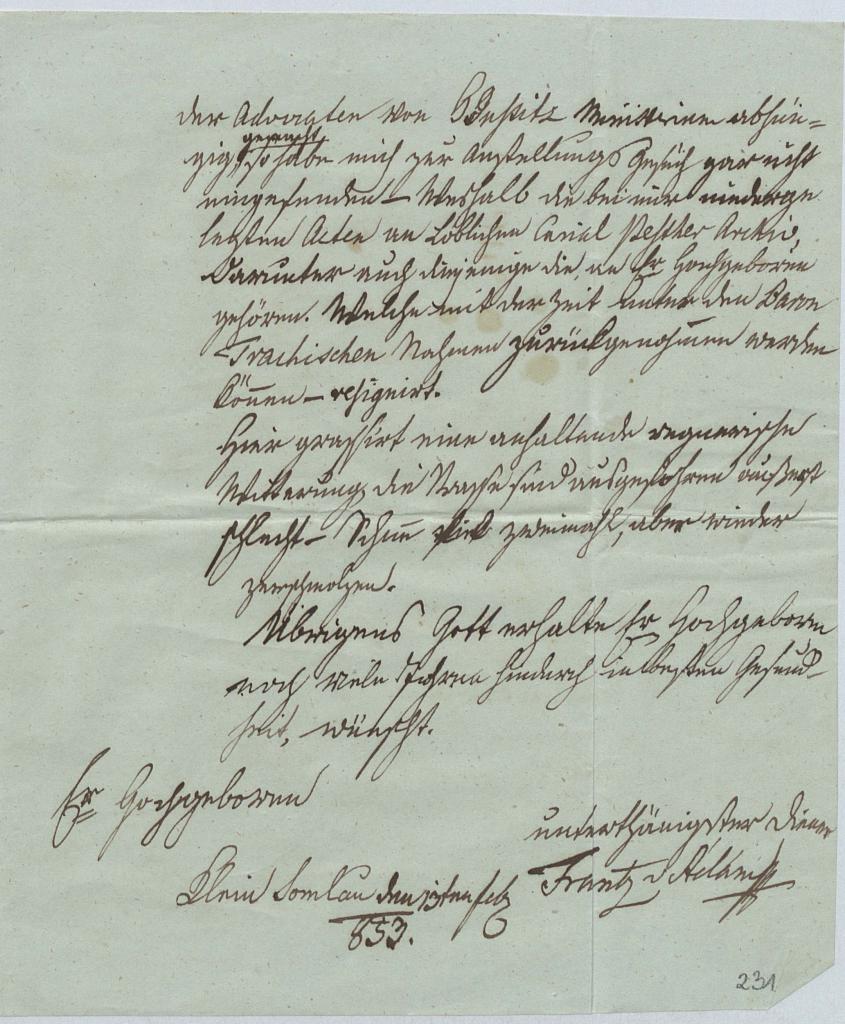 der Advocaten von Justitz Ministerium abhän=
gemacht
gig, so habe mich zur Anstellungs Gesuch gar nicht
eingefunden – Weshalb die bei mir niederge
legten Acten an Löblichen Pesther Archiv,
Darunter auch diejenige die an Er Hochgeboren
gehören. Welche mit der Zeit unter den Baron
Nahmen zurückgenohmen werden
können – resignirt.
Hier grassirt eine anhaltende regnerische
Witterung, die Strasse sind ausgefahren äußerst
schlecht – Schnee fiel zweimahl, aber wieder
zerschmolzen.
Übrigens Gott erhalte Er Hochgeboren
noch viele Jahren hindurch in besten Gesund-
heit, wünscht.
Er Hochgeboren
unterthänigster Diener
Frantz v
Klein Somlau den 13ten Feb
853.
231